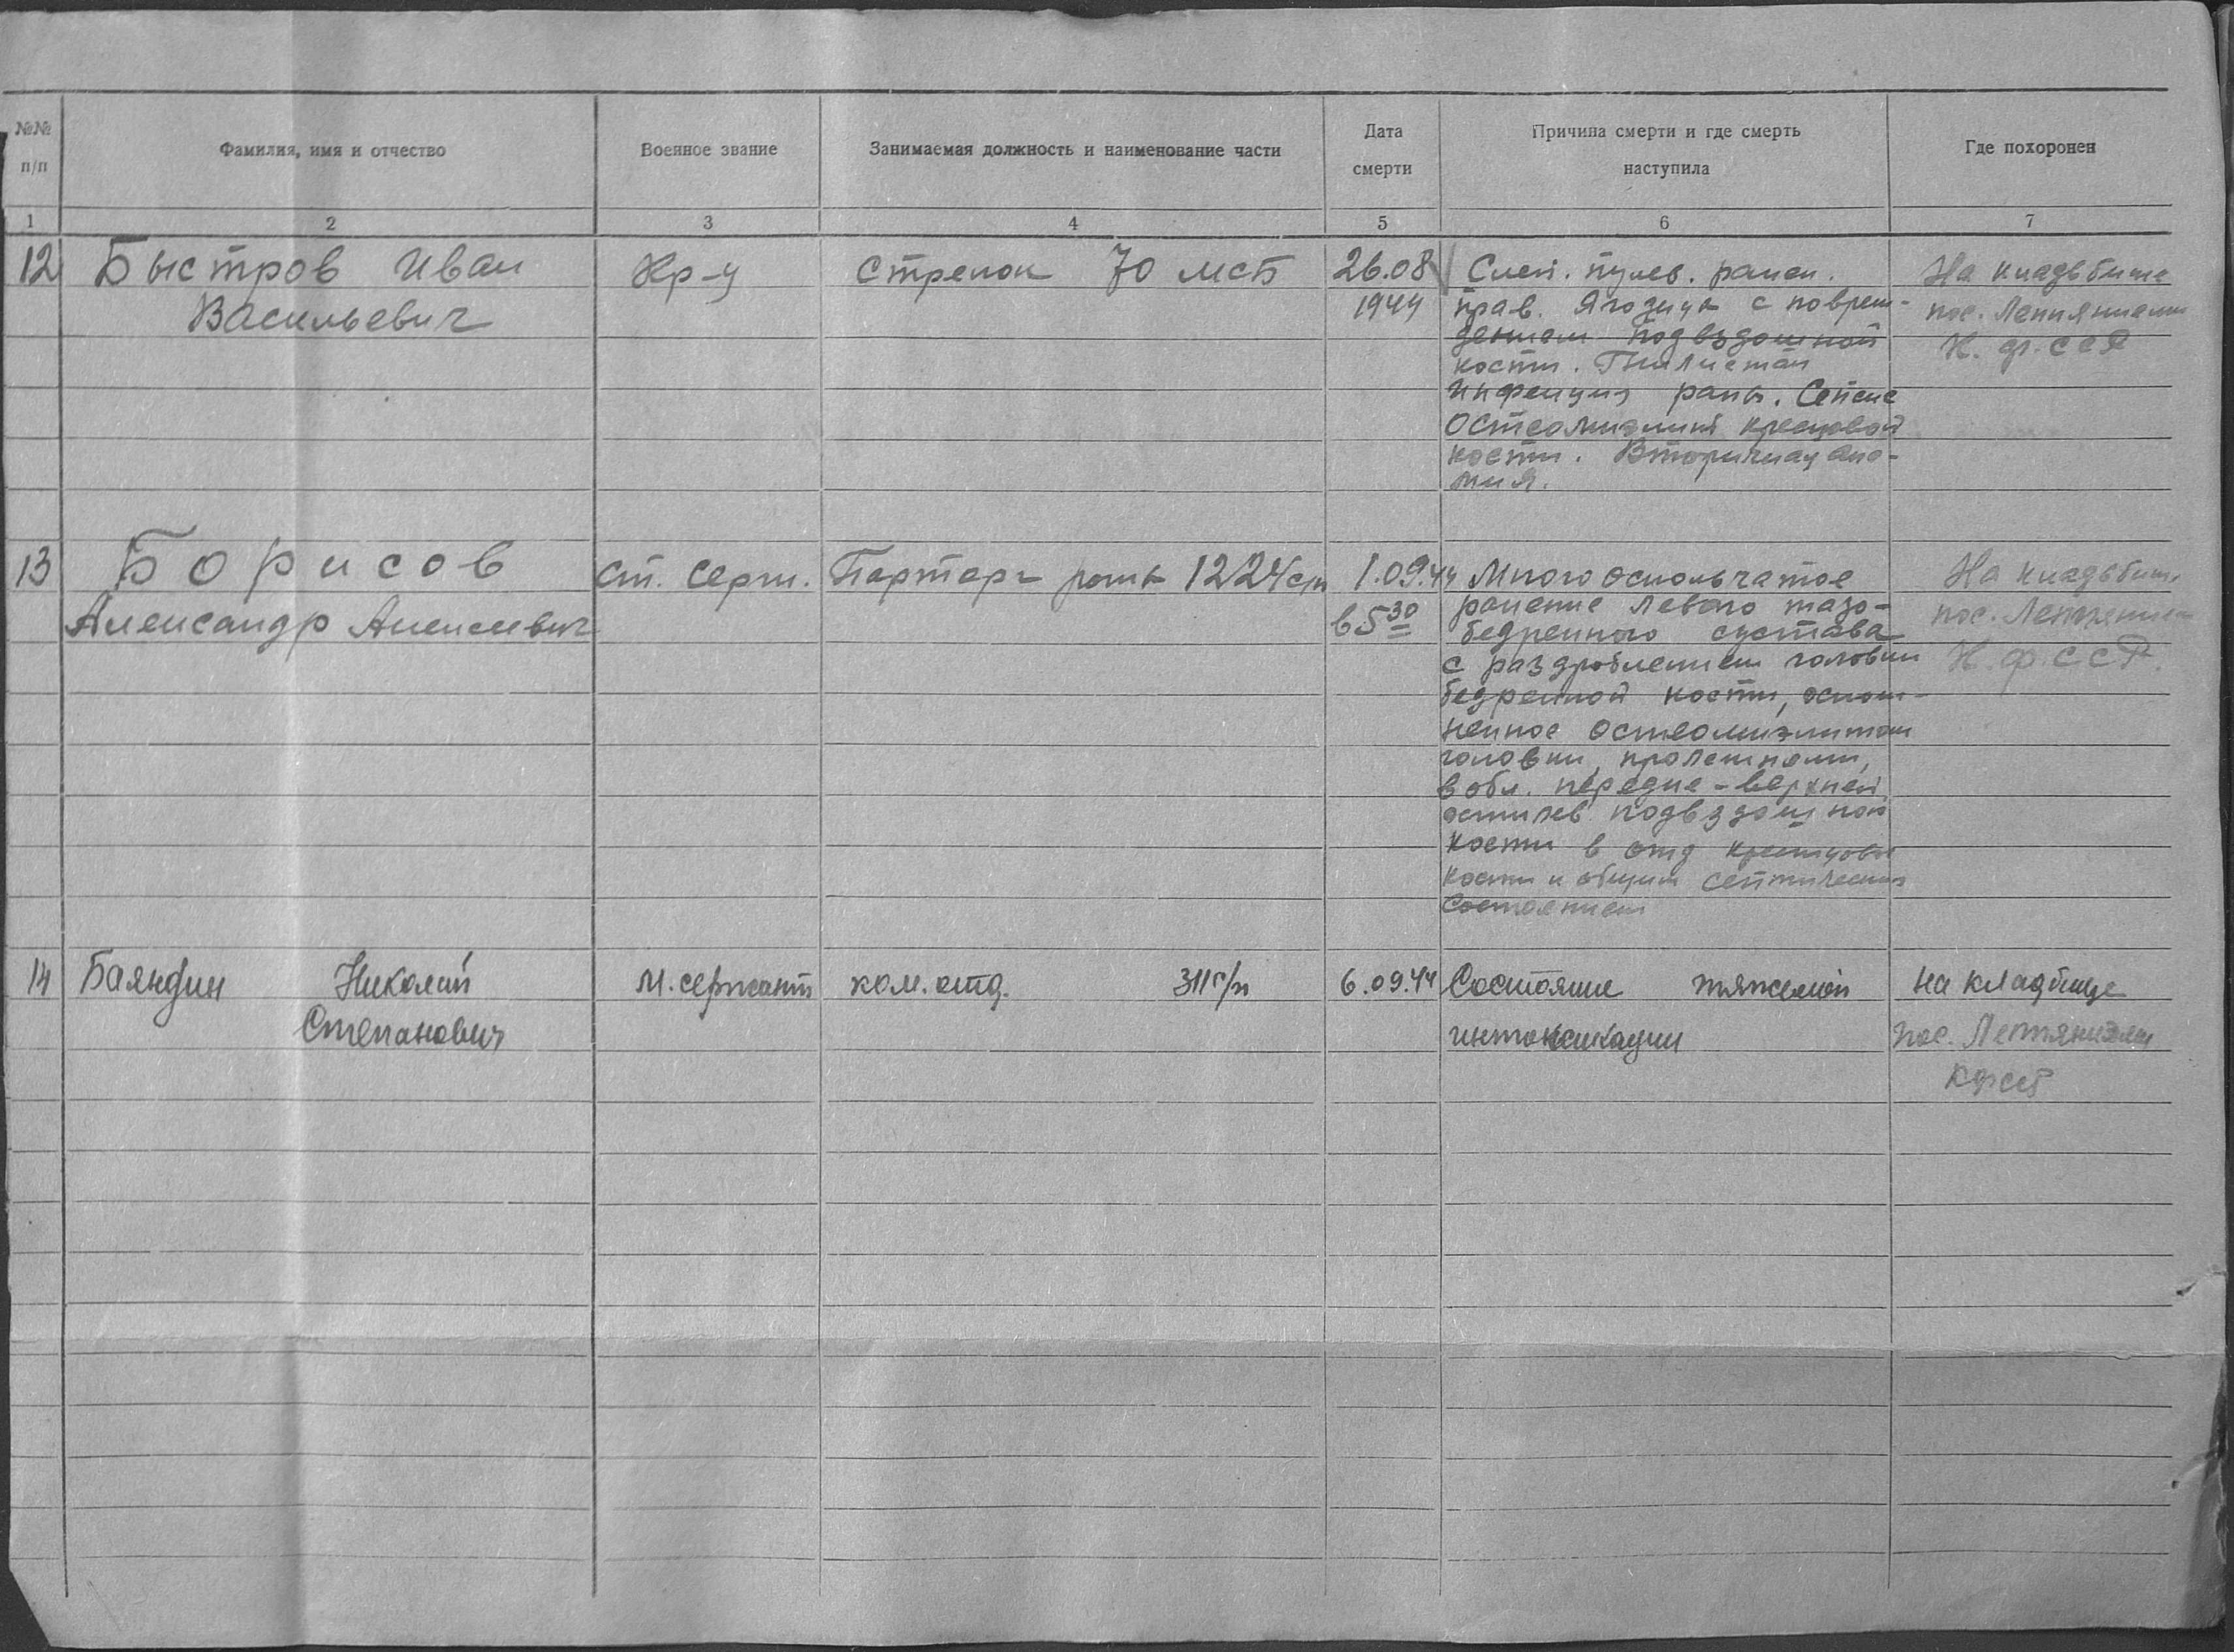 №№ п/п
Фамилия, имя и отчество
Военное звание
Занимаемая должность и наименование части
Дата смерти
Причина смерти и где смерть наступила
Где похоронен
1
2
3
4
5
6
7
12
Быстров Иван
Васильевич
Кр-ц
Стрелок 70 мсб
26.08
1944
Слеп. пулев. ранен.
прав. ягодицы с повреж-
дением подвздошной
кости. Гнилистая
инфекция раны. Сепсис
Остеомиэлит крестцовой
кости. Вторичная ане-
мия.
На кладбище
пос.
К. ф. ССР
13
Борисов
Александр Алексеевич
Ст. Серж.
Парторг роты 1224 сп
1.09.44
в 5 30
Многооскольчатое
ранение левого тазо-
бедренного сустава
с раздроблением головки
бедренной кости, ослож-
ненное остеомиэлитом
головки, пролежнями,
в обл. передне-верхней
подвздошной
кости в крестцовой
кости и общим септическим
состоянием
На кладбище
пос.
К. ф. ССР.
14
Баяндин Николай
Степанович
М. сержант
ком. отд. 311 с/п
6.09.44
Состояние тяжелой
интоксикации
на кладбище
пос.